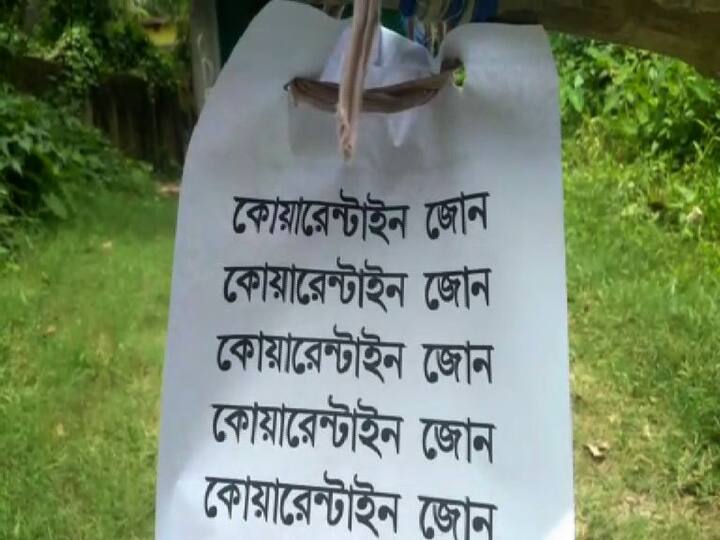 কোয়ারেন্টাইন জোন
কোয়ারেন্টাইন জোন
কোয়ারেন্টাইন জোন
কোয়ারেন্টাইন জোন
কোয়ারেন্টাইন জোন